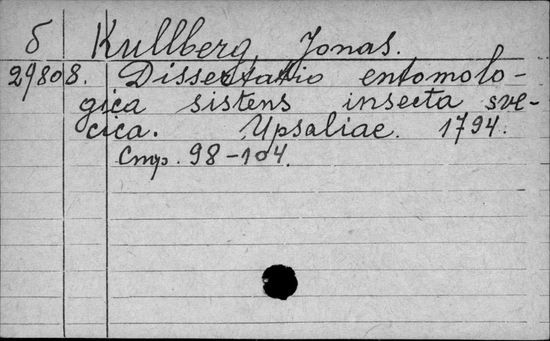 б Kullberg, Jonas.
29808. Dissertatio entomolo-
gica sistens insecta sve-
cica. Upsaliae. 1794.
Стр. 98-104.